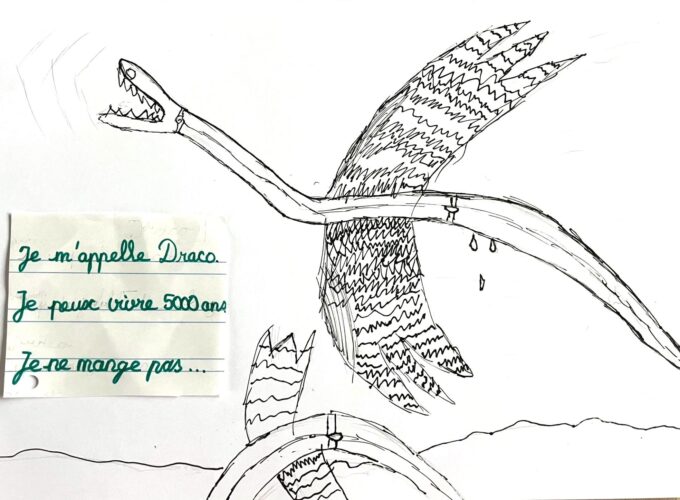 Je m'appelle Draco.
Je peux vivre 5000 ans
Je ne mange pas...